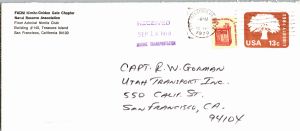 FADM Nimitz-Golden Gate Chapter
Naval Reserve Association
Fleet Admiral Nimitz Club
Building #140, Treasure Island
San Francisco, California 94130
RECEIVED
MARINE TRANSPORTATION
USA 13c
CAPT. R. W. GORMAN
UTAH TRANSPORT INC.
550 CALIF. ST.
SAN FRANCISCO, CA.
94104